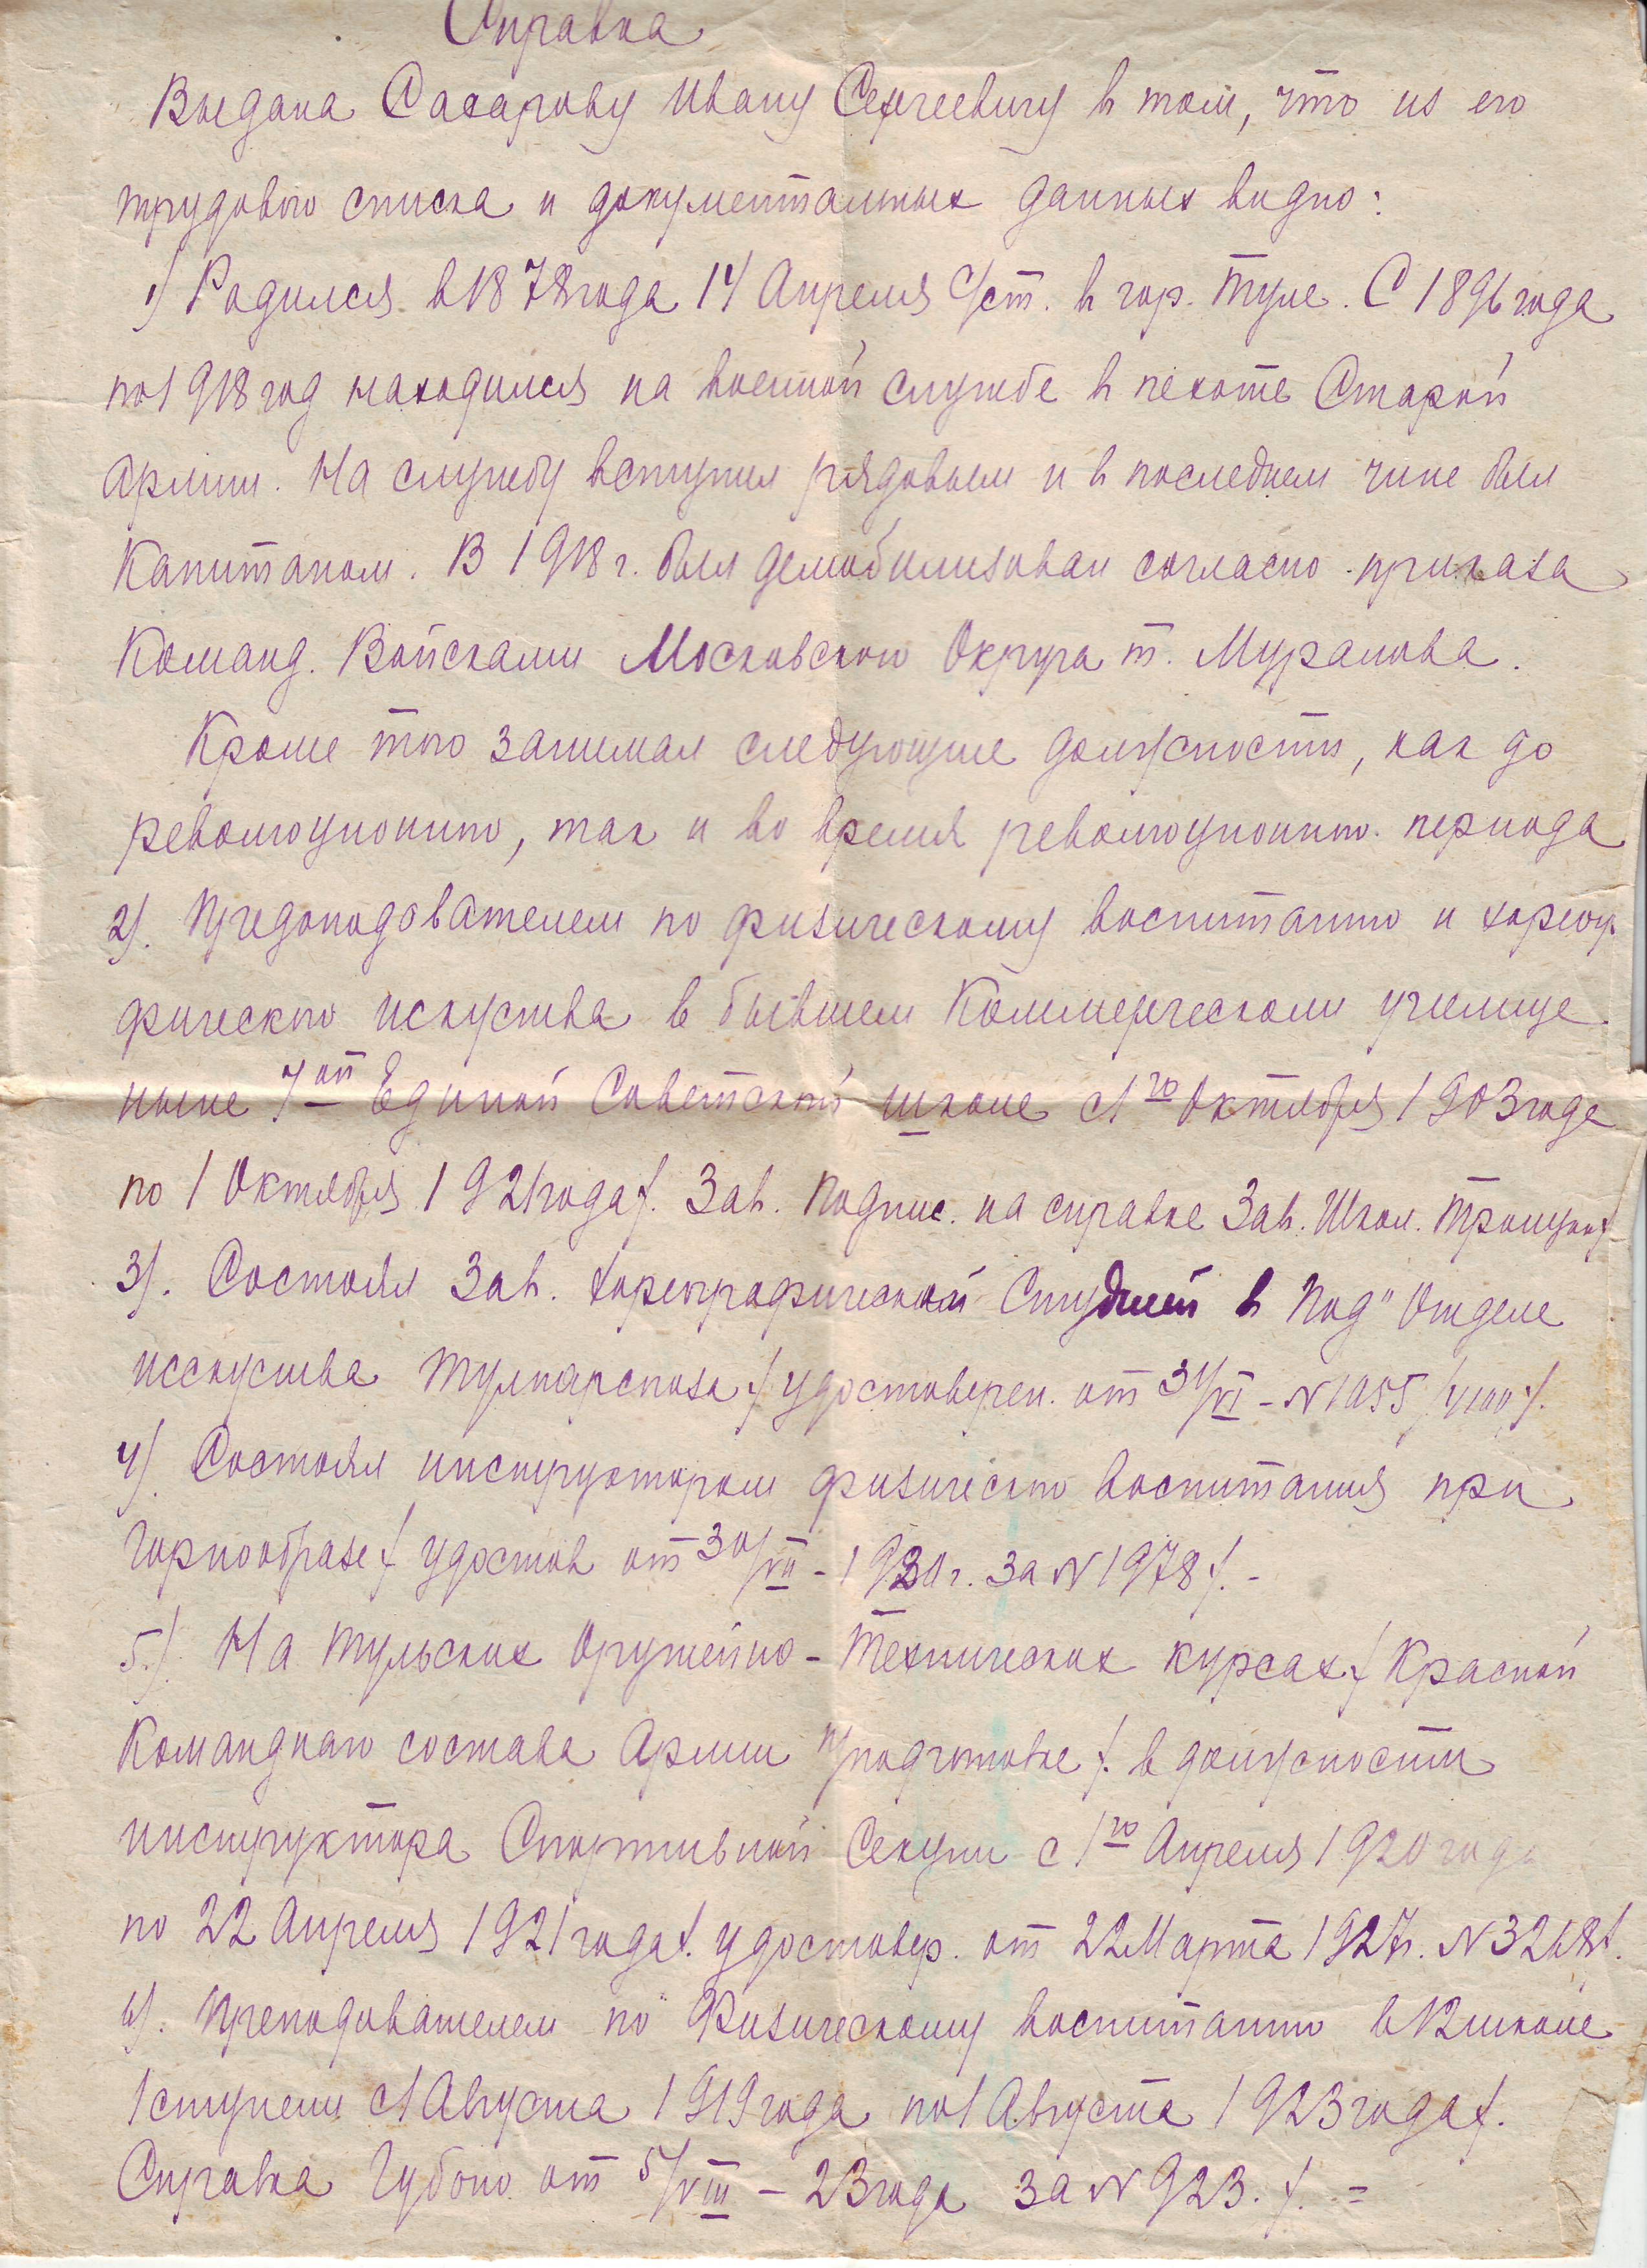 Справка
Выдана Сахарову Ивану Сергеевичу в том, что из его
трудового списка и документальных данных видно:
1) Родился в 1878 года 14 Апреля с/ст. в гор. Туле. С 1896 года
по 1918 год находился на военной службе в пехоте Старой
Армии. На службу вступил рядовым и в последнем чине был
Капитаном. В 1918 г. был демобилизован согласно приказа
Команд. Войсками Московского Округа т. Муралова.
Кроме того занимал следующие должности, как до
революционно, так и во время революционно. периода
2). Предоподователем по физическому воспитанию и хореогр
фического искуства в бывшем Коммерческом училище
ныне 7ой Единой Советской школе с 1го Октября 1903 года
по 1 Октября 1921 года/. Зав. Подпис. на справке Зав. Школ. Троицкий/
3). Состоял Зав. Хореографической Студией в Под"Отделе
исскуства Тулнарспоза / удостоверен. от 31/VI - N 1055
4) Состоял инструктором физического воспитания при
Горнообразе / удостов от 30/VII - 1921 г. за N 1978 /. -
5.) На Тульских Оружейно - Технических курсах / Красной
Командного состава Армии п/подготовке /. в должности
инструктора Спортивной Секции с 1го Апреля 1920 года
по 22 Апреля 1921 года /. удостовер. от 22 Марта 1927г. N 3268/.
6). Преподавателем по Физическому воспитанию в 12 школе
1 ступени с 1 Августа 1919 года по 1 Августа 1923 года /.
Справка Губоно от 5/VIII - 23 года за N 923. /. =